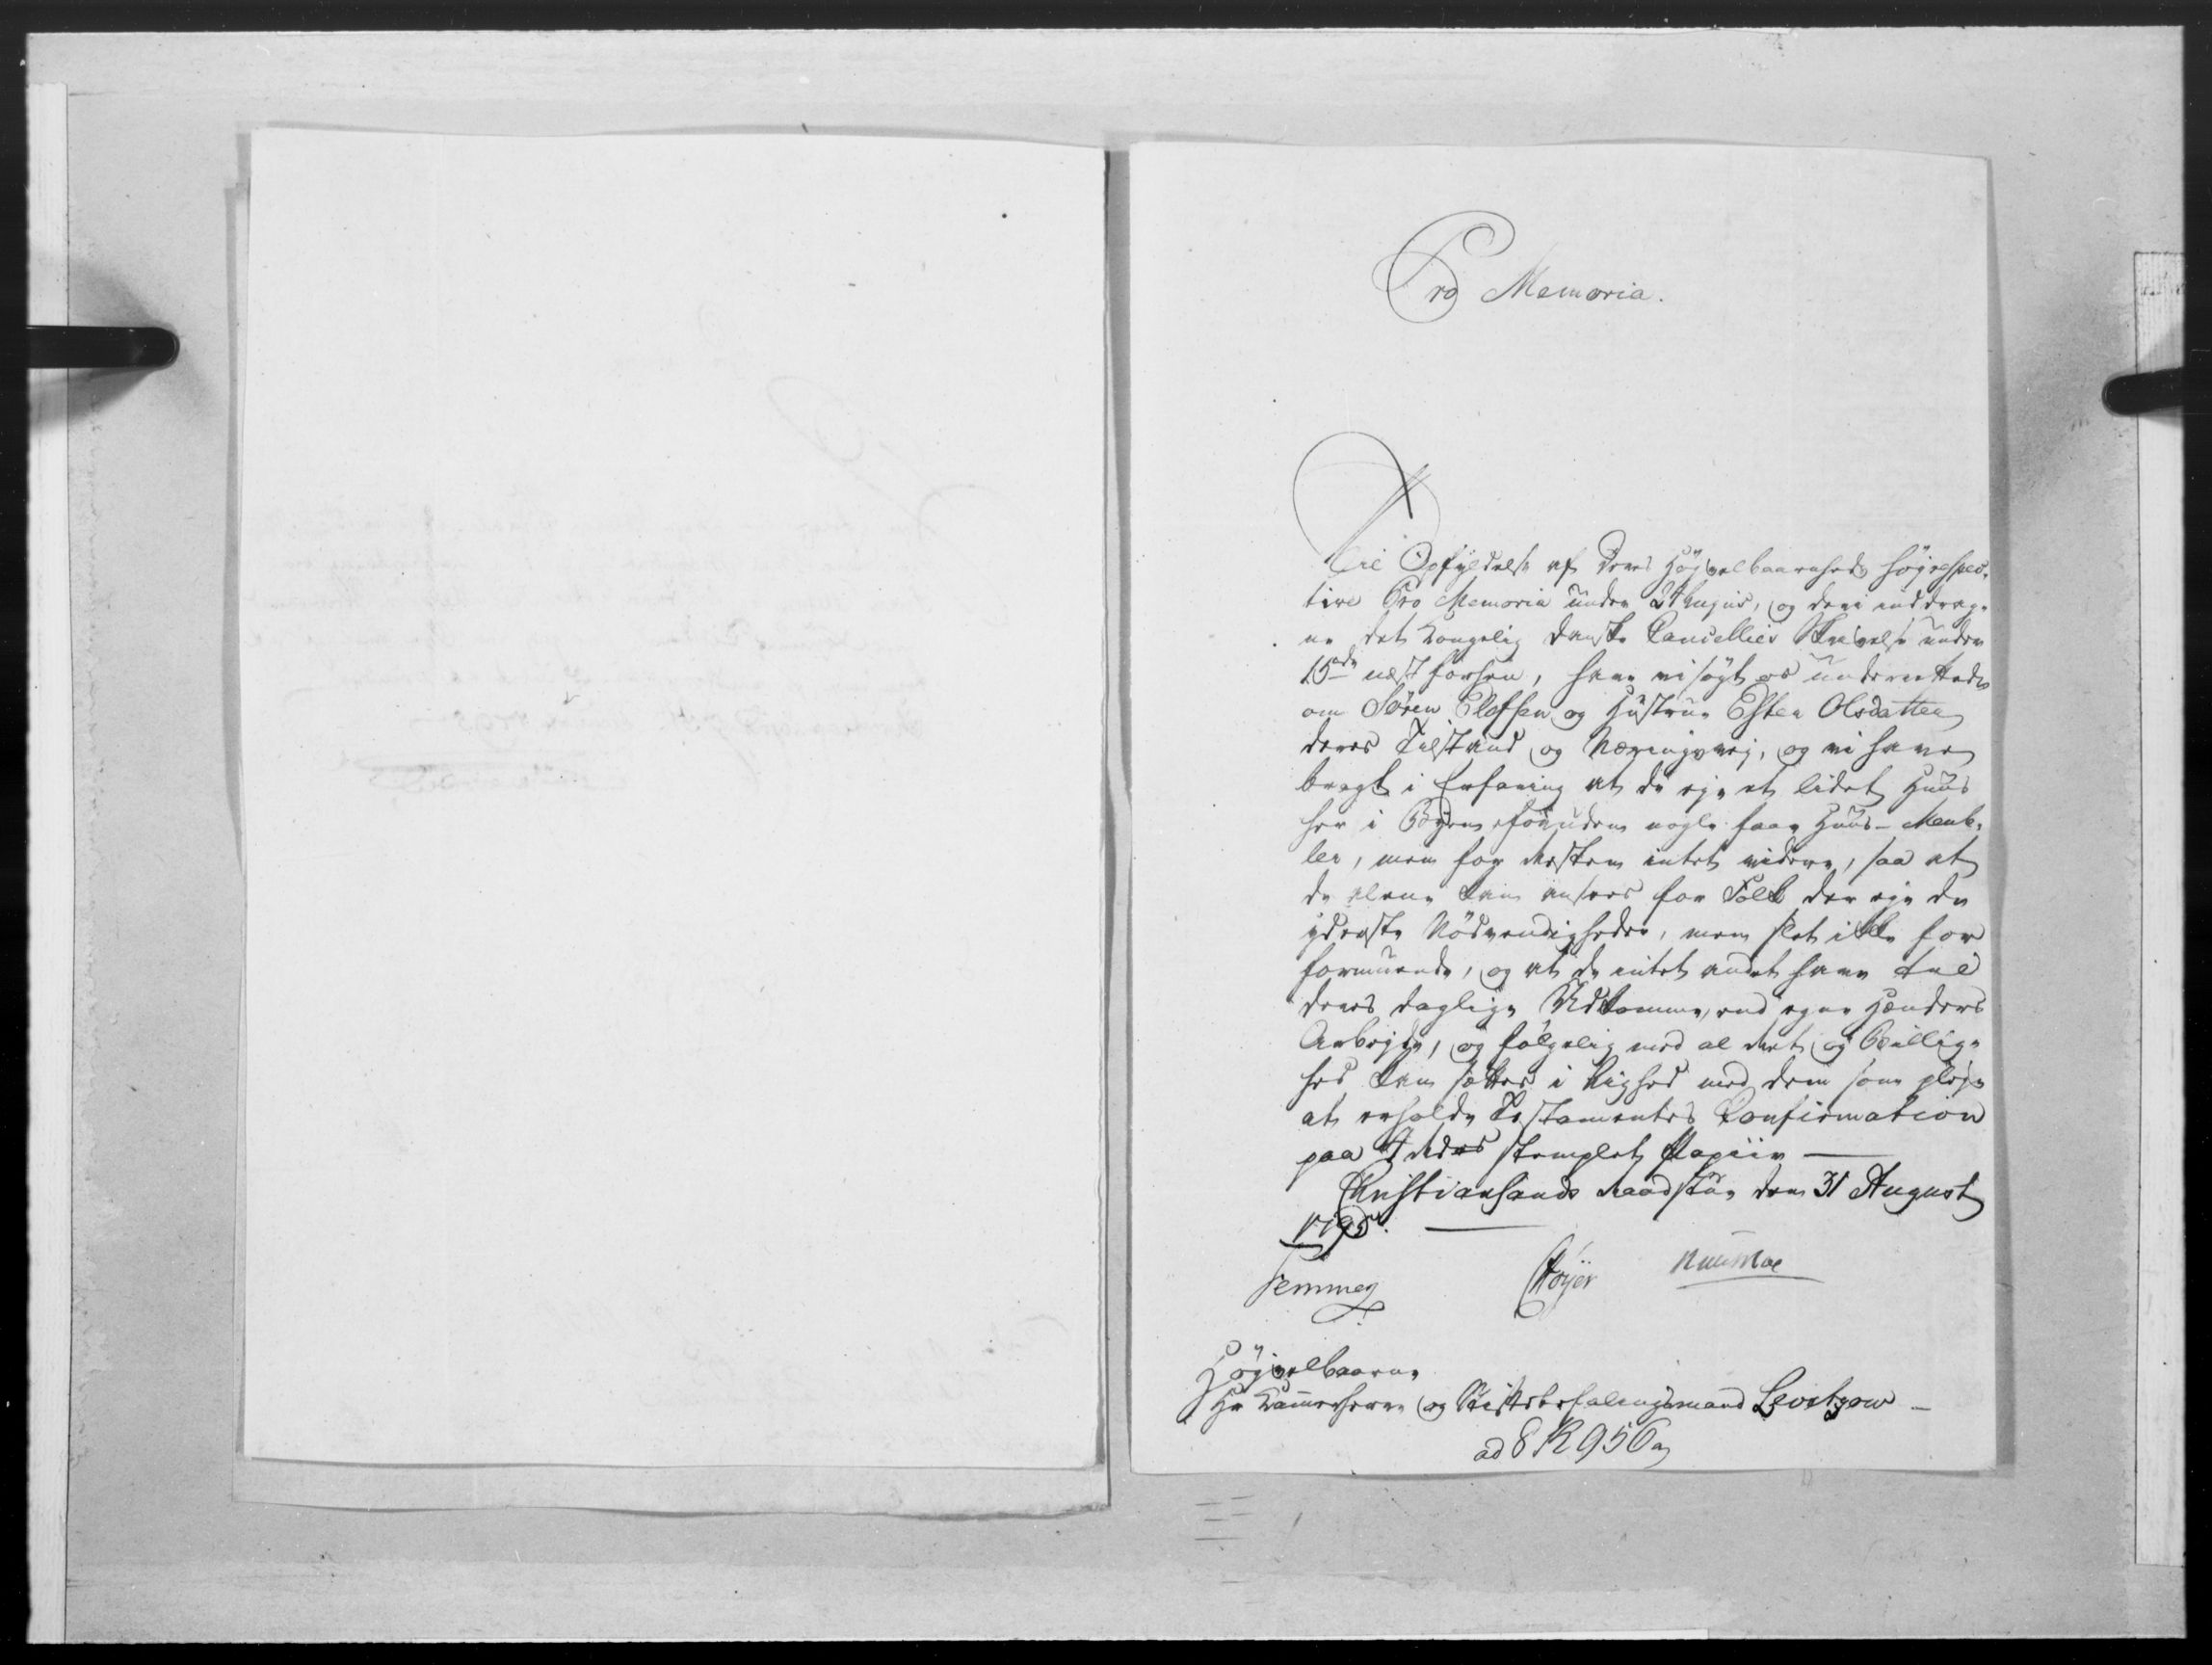 Pro Memoria.
Til Opfyldelse af Deres Højvelbaarenheds højrespec-
tive Pro Memoria under 24 Augus, og deri inddrag-
ne det Kongelig Danske Cancellies Skrivelse under
15de næst forhen, have vi søgt os underrettede
om Søren Elofsen og Hustrue Ester Olsdatter
deres Tilstand og Næringsvej, og vi have
bragt i Erfaring at de eje et lidet Huus
her i Byen, foruden nogle faae Huus-Meub-
ler, men for Resten intet videre, saa at
de alene kan ansees for Folk der eje de
yderste Nødvendigheder, men slet ikke for
formuende, og at de intet andet have til
deres daglige Udkomme, end egne Hænders
Arbejde, og følgelig med al Ret og Billig-
hed kan sættes i Lighed med dem som pleje
at erholde Testamentes Confirmation
paa Rdrs stemplet Papiir —
Christiansands Raadstue den 31 August
1795. —
Høyer
Højvelbaarne
Hr Kammerherre og Stiftsbefalingsmand Levetzow —
ad 8 R 956